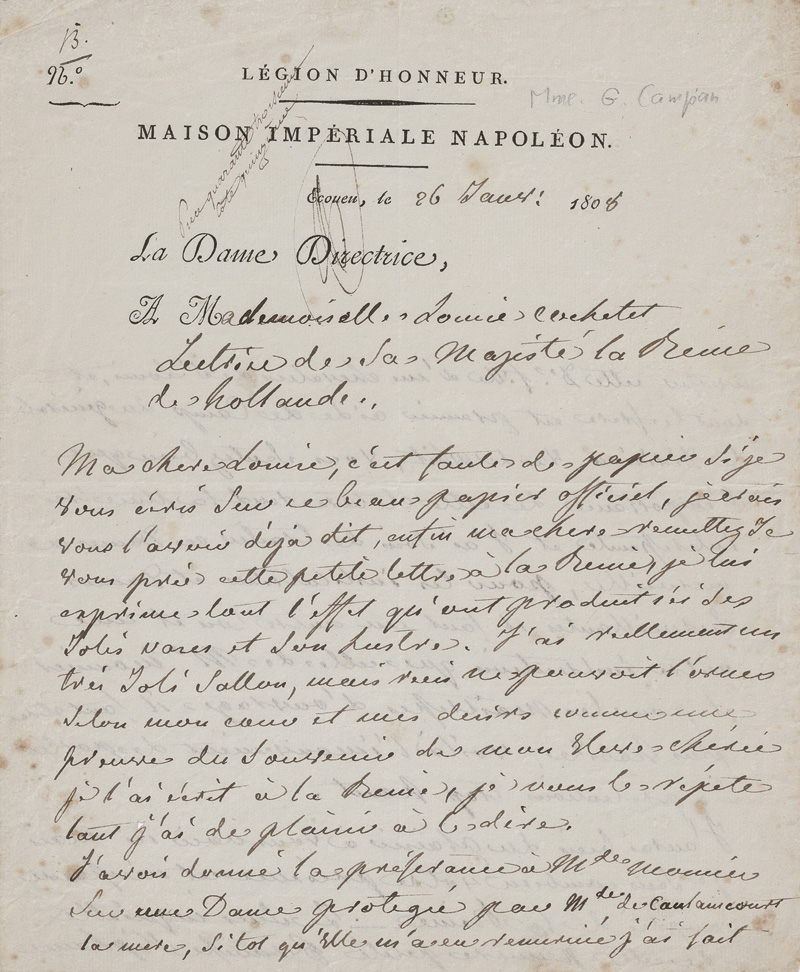 B.
96.º
LÉGION D'HONNEUR.
Mme. G. Campan
MAISON IMPÉRIALE NAPOLÉON.
Ecouen, le 26 Janv: 1808
La Dame Directrice,
A Mademoiselle Louise cochelet
Lectrice de Sa Majesté la Reine
de hollande.,
Ma chere Louise, c'est faute de papier Si je
vous écris Sur ce beau papier officiel, je crois
vous l'avoir déja dit, enfin ma chere remettez Je
vous prie cette petite lettre à la Reine, je lui
exprime tout l'effet qu'ont produit ici Ses
Jolis vases et Son lustre. J'ai reellement un
très Joli Sallon, mais rien ne pouvoit l'orner
Selon mon cœur et mes desirs comme une
preuve du Souvenir de mon Eleve chérie
je l'ai écrit à la Reine, je vous le répéte
tant j'ai de plaisir à le dire.
J'avois donné la préférance à Mde
Sur une Dame protegée par Mde de Caulaincourt
la mere, Sitot qu'Elle m'a en j'ai fait